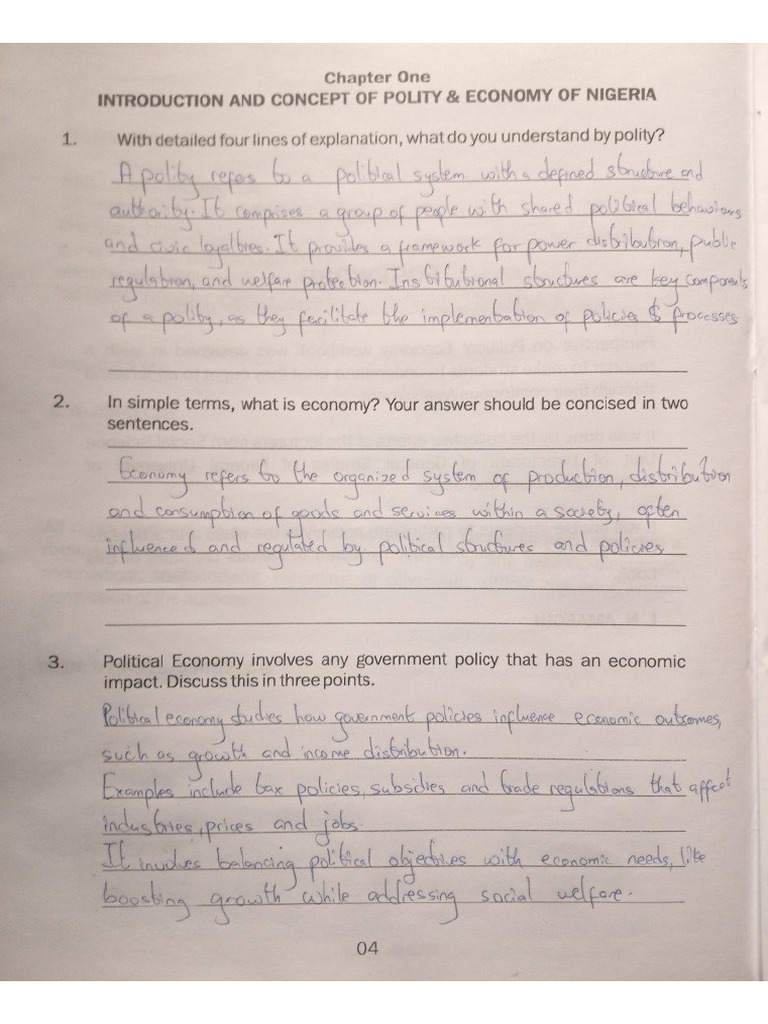 Chapter One
INTRODUCTION AND CONCEPT OF POLITY & ECONOMY OF NIGERIA
1. With detailed four lines of explanation, what do you understand by polity?
A polity refers to a political system with a defined structure and
authority. It comprises a group of people with shared political behaviours
and civic loyalties. It provides a framework for power distribution, public
regulation, and welfare protection. Institutional structures are key components
of a polity, as they facilitate the implementation of policies & processes
2. In simple terms, what is economy? Your answer should be concised in two
sentences.
Economy refers to the organized system of production, distribution
and consumption of goods and services within a society, often
influenced and regulated by political structures and policies
3. Political Economy involves any government policy that has an economic
impact. Discuss this in three points.
Political economy studies how government policies influence economic outcomes,
such as growth and income distribution.
Examples include tax policies, subsidies and trade regulations that affect
industries, prices and jobs.
It involves balancing political objectives with economic needs, like
boosting growth while addressing social welfare.
04